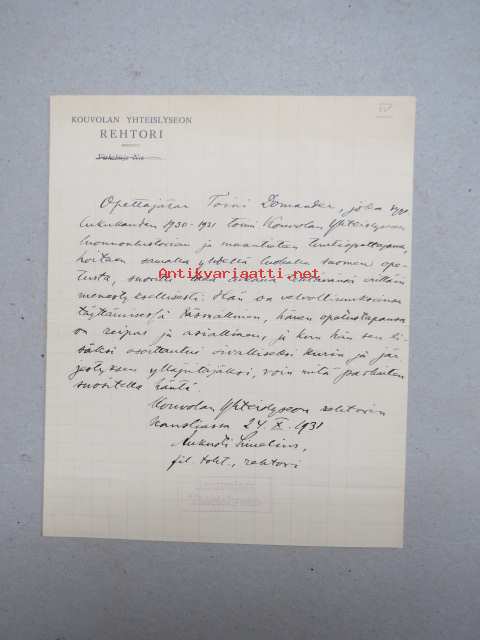 KOUVOLAN YHTEISLYSEON
REHTORI
IV
Opettajatar Toini Lomander, joka syys-
lukukauden 1930-1931 toimi Kouvolan Yhteislyseon
luonnonhistorian ja maantieteen tuntiopettajana,
hoitaen samalla yhdellä luokalla suomen ope-
tusta, suoritti tänä aikana tehtävänsä erittäin
Antikvariaatti.net
menestyksellisesti. Hän on velvollisuuksiensa
täyttämisessä tunnollinen, hänen opetustapansa
on reipas ja asiallinen, ja kun hän sen li-
säksi osoittautui siveälliseksi kurin ja jär-
jestyksen ylläpitäjäksi, voin mitä parhaiten
suositella häntä.
Kouvolan Yhteislyseon rehtorin
kansliassa 24. X. 1931
Aukusti Simelius,
fil. toht., rehtori
Kouvolan
Yhteislyseo